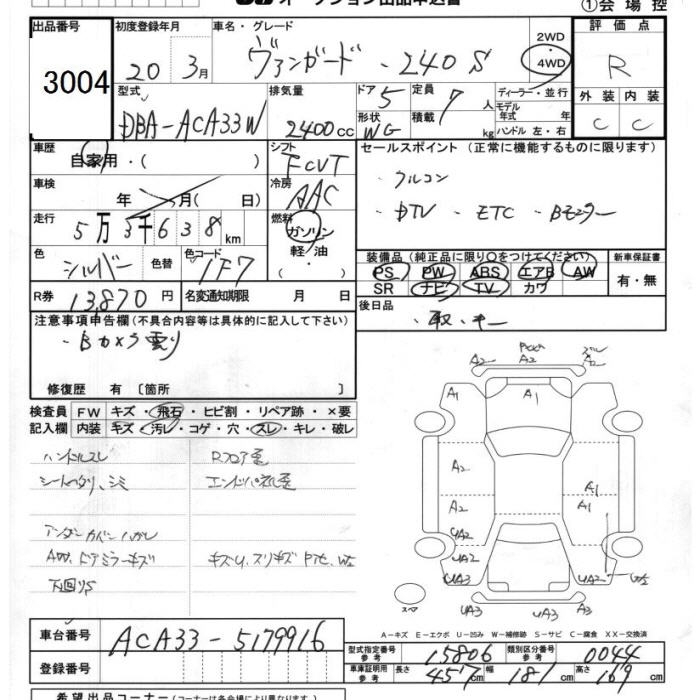 オークション出品申込書
①会場控
出品番号 3004
初度登録年月 20年 3月
車名・グレード ヴァンガード・240S
2WD・4WD
評価点 R
型式 DBA-ACA33W
排気量 2400cc
ドア 5
形状 WG
定員 7人
積載 kg
ディーラー・並行
モデル年式 年
ハンドル 左・右
外装 内装
C C
車歴 自家用・( )
シフト FCVT
セールスポイント (正常に機能するものに限ります)
・フルコン
・DTV ・ETC ・Bモニター
車検 年 月( 日)
冷房 AAC
走行 5万3千638km
燃料 ガソリン・軽油・
色 シルバー 色替 色コード 1F7
装備品(純正品に限り○をつけてください)
PS PW ABS エアB AW
SR ナビ TV カワ
新車保証書 有・無
R券 13,870円 名変通知期限 月 日
後日品 ・取・キー
注意事項申告欄 (不具合内容等は具体的に記入して下さい)
・Bカメラ曇り
修復歴 有 [箇所 ]
検査員記入欄
FW キズ・飛石・ヒビ割・リペア跡・×要
内装 キズ・汚レ・コゲ・穴・スレ・キレ・破レ
ハンドルスレ Rフロア歪
シートヘタリ、シミ エンドパネル歪
アンダーカバーハガレ
AW、ドアミラーキズ
下回リS
A2 A2
A1 A1 A1
A2 A1
A2 A1
UA2
UA2
UA3 UA2
UA3 UA3 UA3
スペア
A−キズ E−エクボ U−凹み W−補修跡 S−サビ C−腐食 XX−交換済
車台番号 ACA33-5179916
型式指定番号 参考 15806 類別区分番号 参考 0044
登録番号
車庫証明用 参考 長さ 457cm 幅 181cm 高さ 169cm
希望出品コーナー